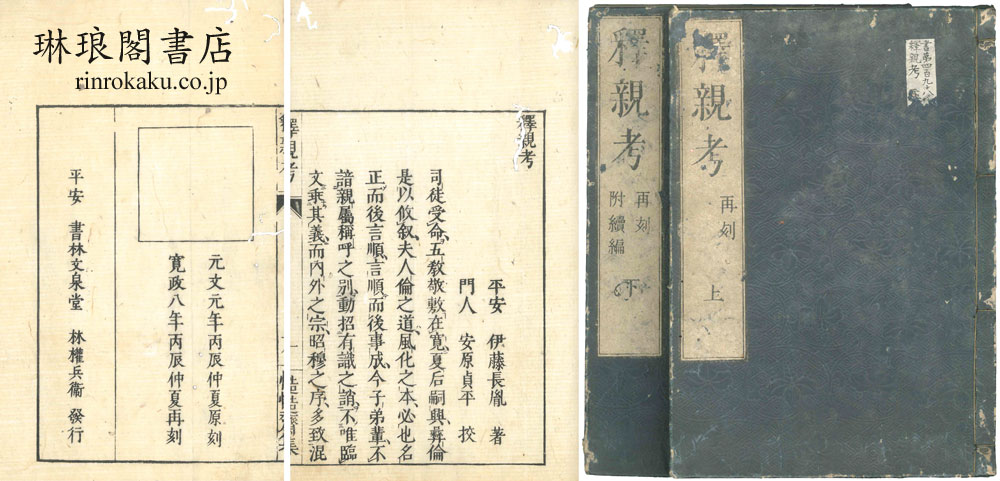 琳琅閣書店
rinrokaku.co.jp
釋親考
平安 伊藤長胤 著
門人 安原貞平 挍
司徒受命、五敎敬敷在寬、夏后嗣興、彛倫
是以攸叙、夫人倫之道、風化之本、必也名
正而後言順、言順而後事成、今子弟輩、不
諳親屬稱呼之別、動招有識之誚、不唯臨
文乖其義、而內外之宗、昭穆之序、多致混
釋親考
一
元文元年丙辰仲夏原刻
寬政八年丙辰仲夏再刻
平安 書林文泉堂 林權兵衞 發行
釋親考 再刻 上
釋親考 再刻 附續編 下
書第四百九十八
釋親考